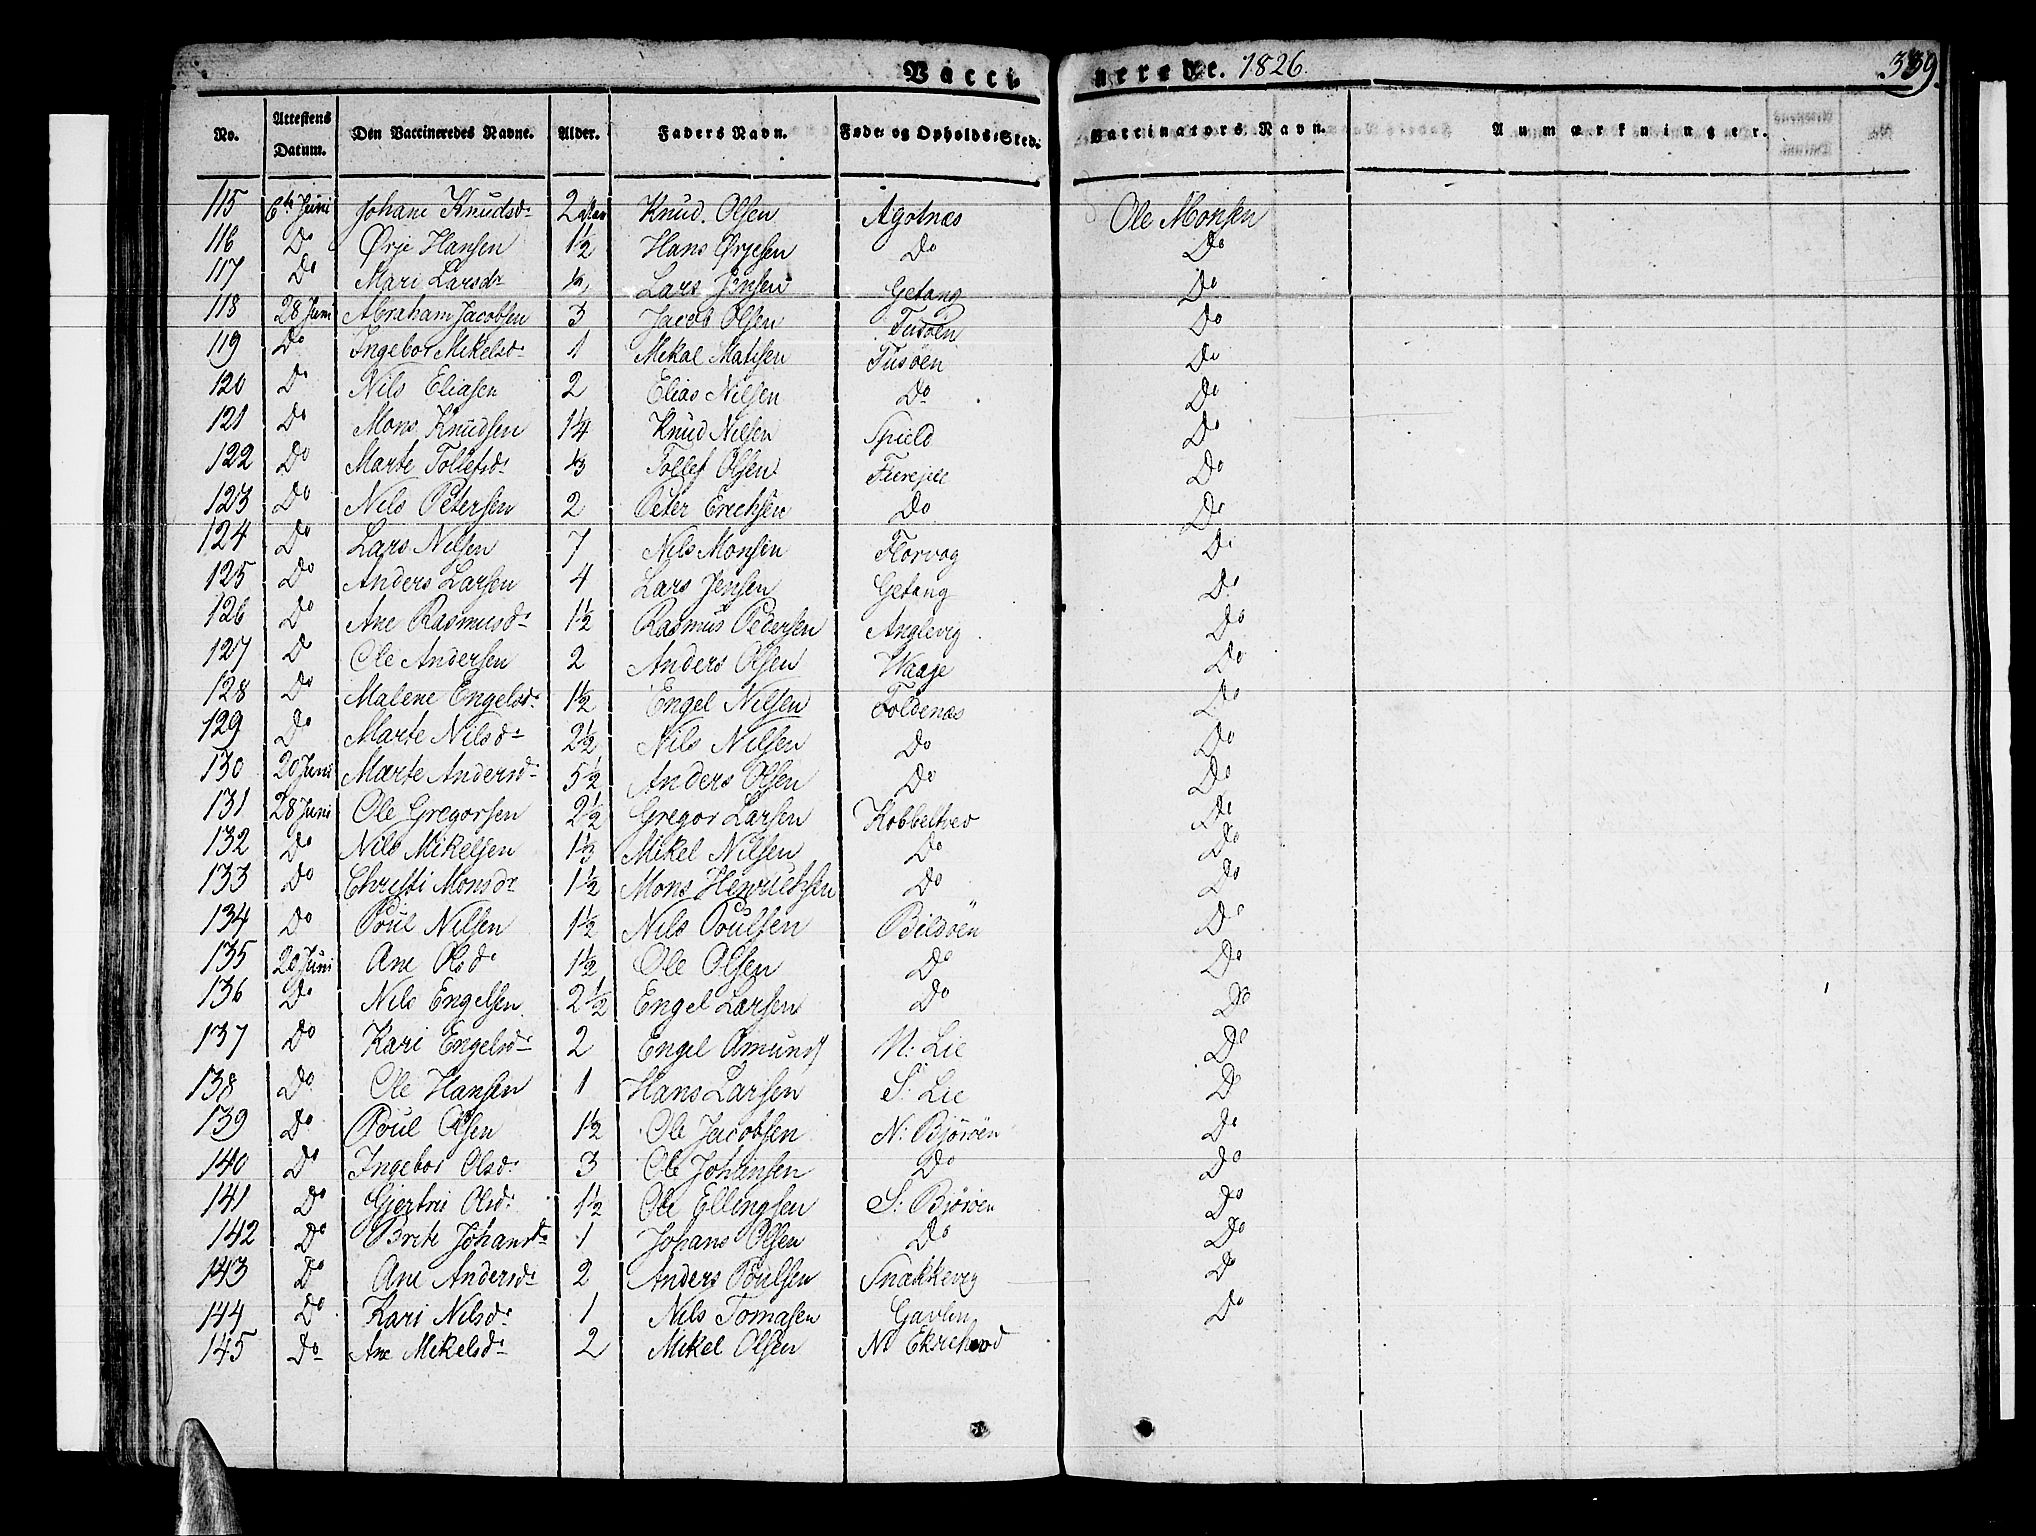 Vaccinerede. 1826. 339.
No. Attestens Datum. Den Vaccineredes Navne. Alder. Faders Navn. Føde- og Opholds-Sted. Vaccinators Navn. Anmærkninger.
115 6te Juni Johane Knudsd: 2 Knud. Olsen Agotnæs Ole Monsen
116 Do Ørje Hansen 1½ Hans Ørjesen Do Do
117 Do Mari Larsdr Lars Jensen Getang Do
118 28 Juni Abraham Jacobsen 3 Jacob Olsen Tusöen Do
119 Do Ingebor Mikelsd: 1 Mikal Matisen Tusöen Do
120 Do Nils Eliasen 2 Elias Nilsen Do Do
121 Do Mons Knudsen 1¼ Knud Nilsen Spield Do
122 Do Marte Tollefsd: Tollef Olsen Do
123 Do Nils Petersen 2 Peter Erichsen Do Do
124 Do Lars Nilsen 7 Nils Monsen Florvog Do
125 Do Anders Larsen 4 Lars Jensen Getang Do
126 Do Ane Rasmusd: 1½ Rasmus Pedersen Anglevig Do
127 Do Ole Andersen 2 Anders Olsen Waage Do
128 Do Malene Engelsd: 1½ Engel Nilsen Foldenæs Do
129 Do Marte Nilsd: 2½ Nils Nilsen Do Do
130 20 Juni Marte Andersd: 5½ Anders Olsen Do Do
131 28 Juni Ole Gregorsen 2½ Gregor Larsen Kobbeltved Do
132 Do Nils Mikelsen 1⅓ Mikel Nilsen Do Do
133 Do Christi Monsdr 1½ Mons Henrichsen Do Do
134 Do Poul Nilsen 1½ Nils Poulsen Bildöen Do
135 20 Juni Ane Olsd: 1½ Ole Olsen Do Do
136 Do Nils Engelsen 2½ Engel Larsen Do Do
137 Do Kari Engelsd: 2 Engel Amunds N: Lie Do
138 Do Ole Hansen 1 Hans Larsen S: Lie Do
139 Do Poul Olsen 1½ Ole Jacobsen N: Björöen Do
140 Do Ingebor Olsd: 3 Ole Johansen Do Do
141 Do Gjertrü Olsd: 1½ Ole Ellingsen S: Björöen Do
142 Do Brite Johansd: 1 Johans Olsen Do Do
143 Do Ane Andersd: 2 Anders Poulsen Snakkevig Do
144 Do Kari Nilsd: 1 Nils Tomasen Gavlen Do
145 Do Ane Mikelsd: 2 Mikel Olsen